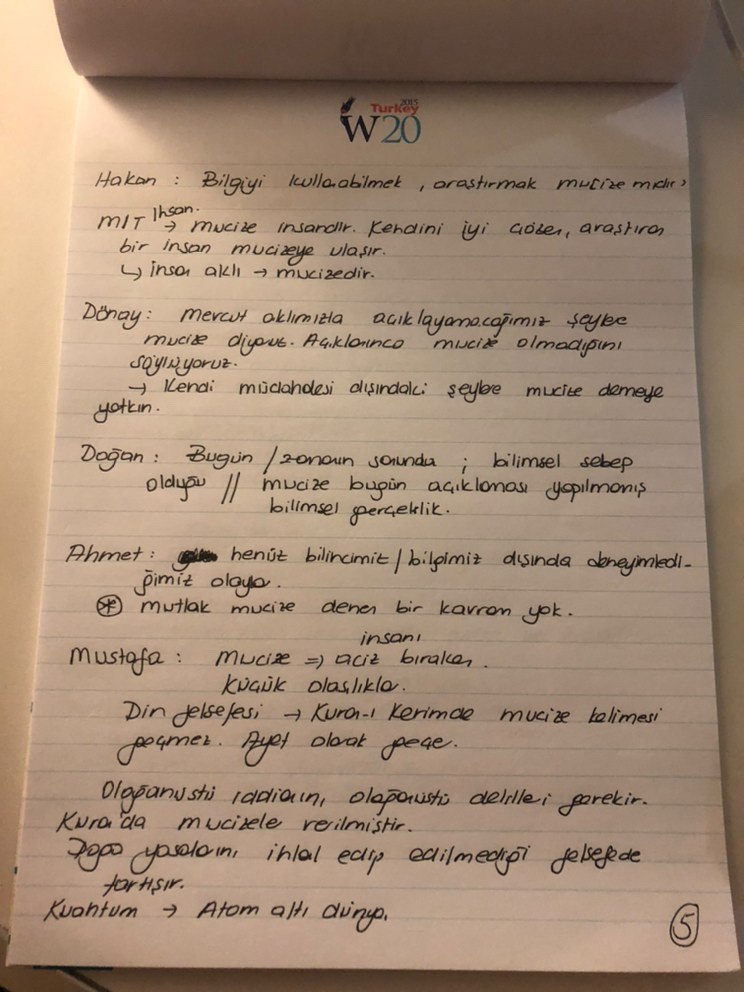 2015
Turkey
W20
Hakan : Bilgiyi kullanabilmek, araştırmak mucize midir?
İhsan.
MIT → mucize insandır. Kendini iyi çözen, araştıran
bir insan mucizeye ulaşır.
↳ insan aklı → mucizedir.
Dönay : Mevcut aklımızla açıklayamacağımız şeylere
mucize diyoruz. Açıklanınca mucize olmadığını
söylüyoruz.
→ Kendi müdahalesi dışındaki şeylere mucize demeye
yatkın.
Doğan : Bugün / zamanın sonunda ; bilimsel sebep
olduğu // mucize bugün açıklaması yapılmamış
bilimsel gerçeklik.
Ahmet : henüz bilincimiz / bilgimiz dışında deneyimledi-
ğimiz olaylar.
* mutlak mucize denen bir kavram yok.
insanı
Mustafa : Mucize => aciz bırakan.
Küçük olasılıklar.
Din felsefesi → Kuran-ı Kerimde mucize kelimesi
geçmez. Ayet olarak geçer.
Olağanüstü iddianın, olağanüstü delilleri gerekir.
Kuran'da mucizeler verilmiştir.
Doğa yasalarını ihlal edip edilmediği felsefede
tartışır.
Kuantum → Atom altı dünya.
5